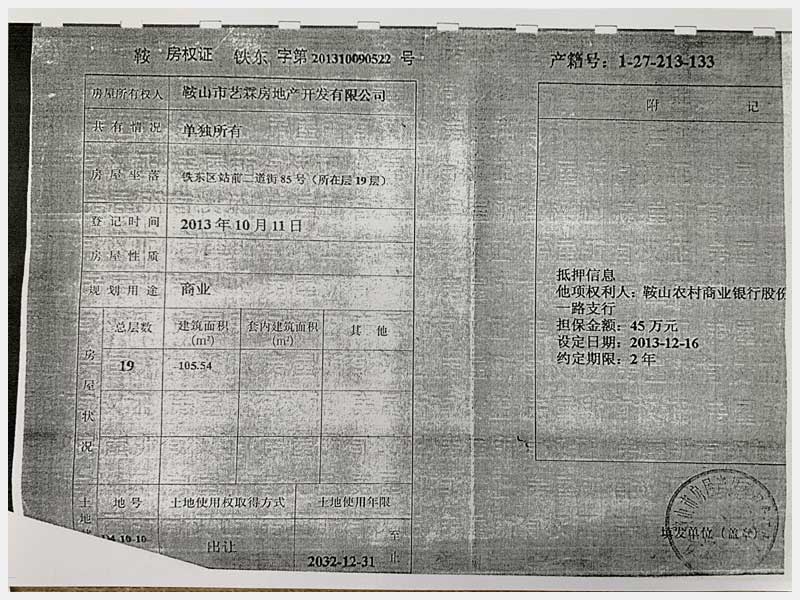 鞍 房权证 铁东 字第 201310090522 号
房屋所有权人 鞍山市艺霖房地产开发有限公司
共有情况 单独所有
房屋坐落 铁东区站前二道街85号(所在层19层)
登记时间 2013年10月11日
房屋性质
规划用途 商业
房屋状况
总层数 建筑面积(m²) 套内建筑面积(m²) 其他
19 105.54
土地
地号 土地使用权取得方式 土地使用年限
出让 2032-12-31 至 止
产籍号:1-27-213-133
附 记
抵押信息
他项权利人:鞍山农村商业银行股份
一路支行
担保金额:45万元
设定日期:2013-12-16
约定期限:2年
填发单位(盖章)